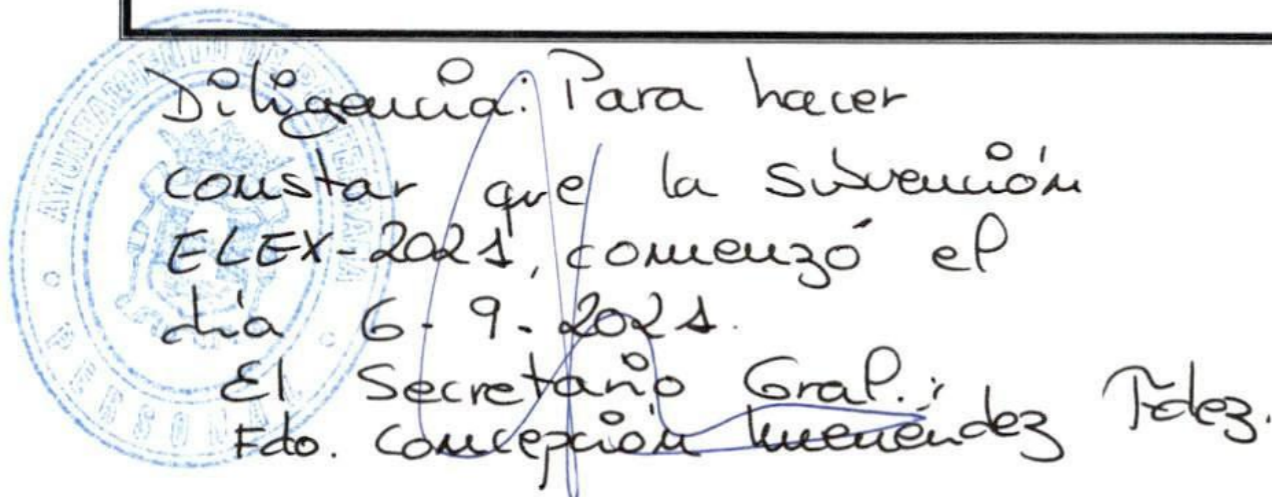 Diligencia: Para hacer
constar que la subvención
ELEX-2021, comenzó el
día 6-9-2021.
El Secretario Gral.:
Fdo. Concepción Menéndez Fdez.
AYUNTAMIENTO
PERSONAL